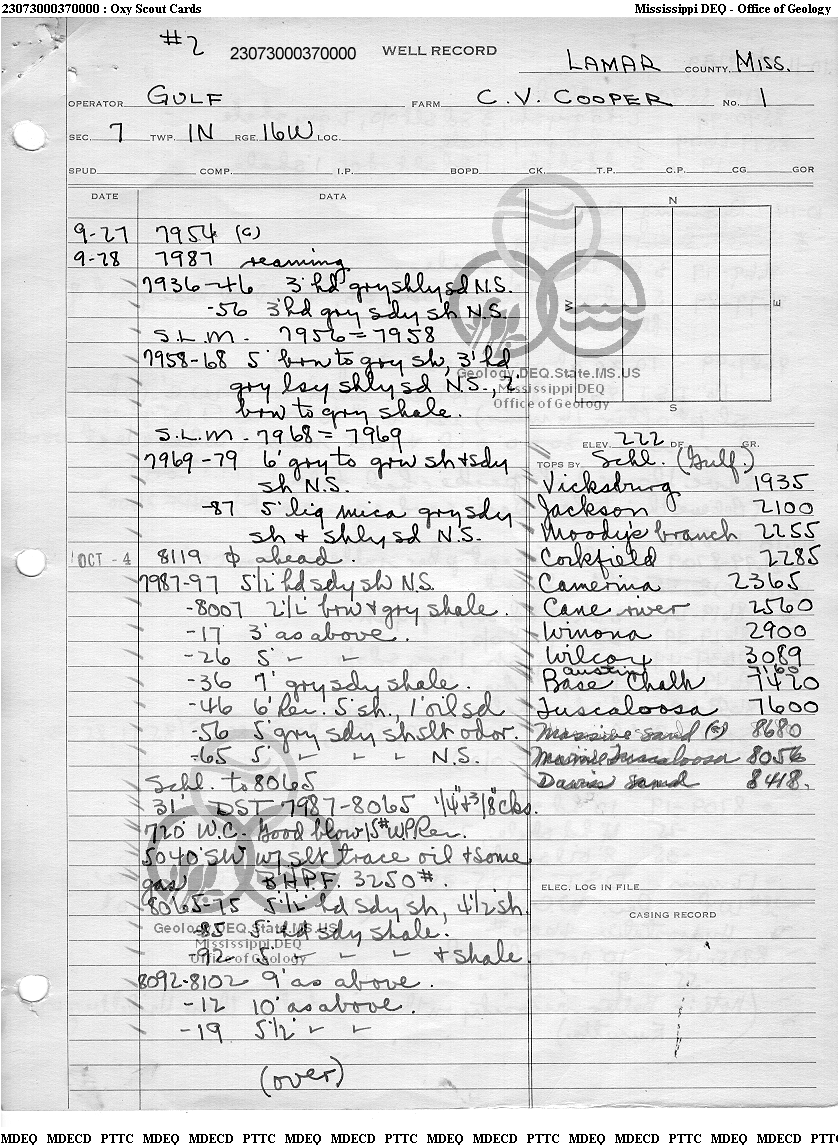 23073000370000 : Oxy Scout Cards
Mississippi DEQ - Office of Geology
#2 23073000370000 WELL RECORD
LAMAR COUNTY, MISS.
OPERATOR GULF FARM C. V. COOPER NO. 1
SEC. 7 TWP. 1N RGE. 16W LOC.
SPUD COMP. I.P. BOPD CK. T.P. C.P. CG GOR
DATE DATA
9-27 7954 (c)
9-28 7987 reaming
7936-46 3' hd gry shly sd N.S.
-56 3' hd gry sdy sh N.S.
S.L.M. - 7956 = 7958
7958-68 5' brn to gry sh, 3' hd
gry lsy shly sd N.S., 2'
brn to gry shale.
S.L.M. - 7968 = 7969
7969-79 6' gry to grn sh & sdy
sh N.S.
-87 5' lig mica gry sdy
sh & shly sd N.S.
OCT - 4 8119 ahead.
7987-97 5 1/2' hd sdy sh N.S.
-8007 2 1/2' brn & gry shale.
-17 3' as above.
-26 5' " "
-36 7' gry sdy shale.
-46 6' Rec. 5' sh., 1' oil sd
-56 5' gry sdy sh slt odor.
-65 5' " " " N.S.
Schl. to 8065
31' DST 7987-8065 1/4" & 3/8" cks.
720' W.C. Good blow 15# WP Rec.
5040' SW w/ slt trace oil & some
gas B.H.P.F. 3250#.
8065-75 5 1/2' hd sdy sh, 4 1/2 sh.
-85 5' hd sdy shale.
-92 5' " " " & shale.
8092-8102 9' as above.
-12 10' as above.
-19 5 1/2' " "
(over)
N
W
E
S
Geology.DEQ.State.MS.US
Mississippi DEQ
Office of Geology
ELEV. 222 DF GR.
TOPS BY Schl. (Gulf.)
Vicksburg 1935
Jackson 2100
Moody's branch 2255
Cockfield 2285
Camerina 2365
Cane river 2560
Winona 2900
Wilcox 3089
austin 7160
Base Chalk 7420
Tuscaloosa 7600
Massive sand (c) 8680
Marine Tuscaloosa 8056
Davis sand 8418.
ELEC. LOG IN FILE
CASING RECORD
Geology.DEQ.State.MS.US
Mississippi DEQ
Office of Geology
MDEQ MDECD PTTC MDEQ MDECD PTTC MDEQ MDECD PTTC MDEQ MDECD PTTC MDEQ MDECD PTTC MDEQ MDECD PTTC